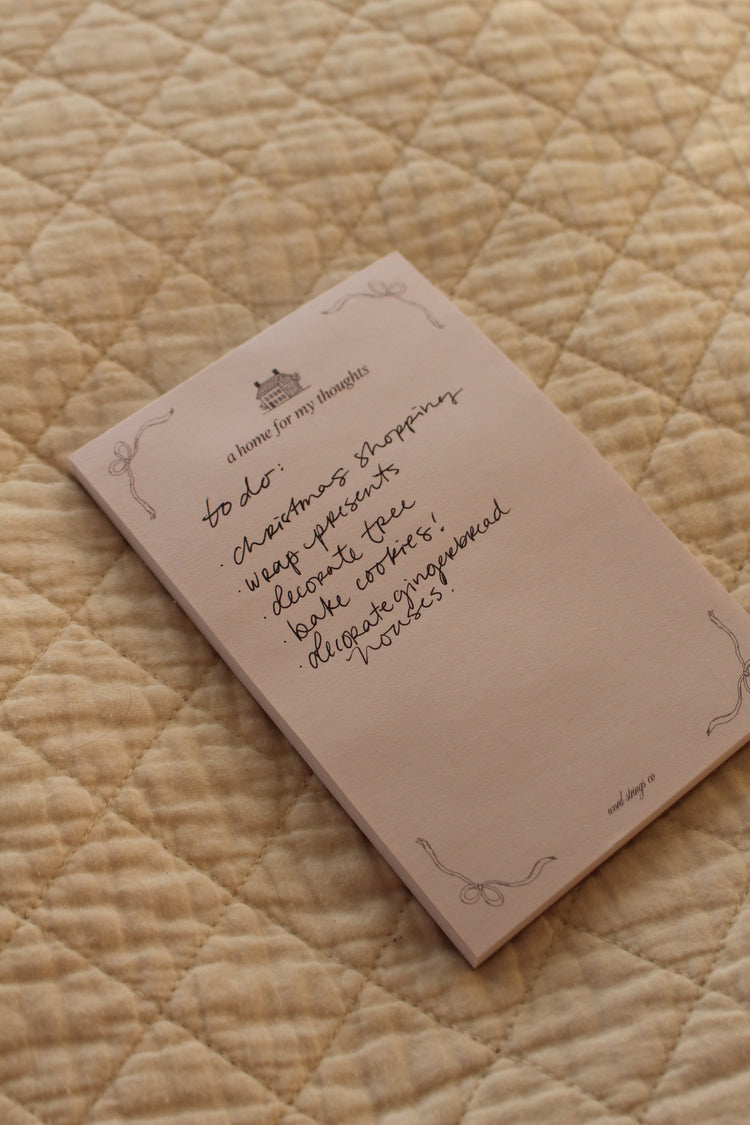 a home for my thoughts
to do:
· christmas shopping
· wrap presents
· decorate tree
· bake cookies!
· decorate gingerbread
houses.
word strings co